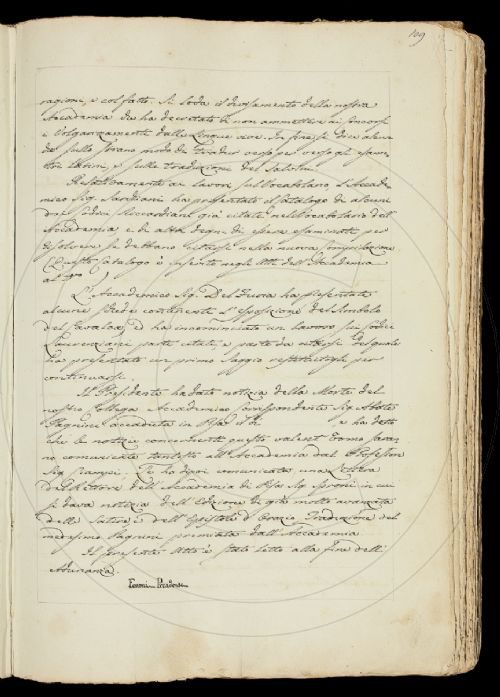 109
ragione, e col fatto. Si loda il divisamento della nostra
Accademia che ha decretato di non ammettere ai Concorsi
i Volgarizzamenti dalle Lingue vive. In fine si dice alcu
sullo strano modo di tradur verso per verso gli esame
Latini, e sulla traduzione del Salvini.
Relativamente ai lavori sul Vocabolario, l'Accade
mico Sig. ha presentato il Catalogo di alcuni
Codici Riccardiani già citati nel Vocabolario dell'
Accademia e di altri degni di essere esaminati per
risolvere se debbano citarsi nella nuova Compilazione
(Questo Catalogo è inserito negli Atti dell'Accademia
al
L'Accademico Sig. Del Furia ha presentate
alcune schede contenenti l'Esposizione del Simbolo
del Cavalca, ed ha incominciato un lavoro sui Codici
Laurenziani parte citati e parte da citarsi del quale
ha presentato un primo Saggio per
continuarsi.
Il Presidente ha dato notizia della Morte del
nostro Collega Accademico Corrispondente Sig. Abate
Pagnini accaduta in Pisa il dì e ha detto
che le notizie concernenti questo valent'Uomo saran
no comunicate all'Accademia dal Professore
Sig. Ciampi. Ha di poi comunicata una Lettera
del Rettore dell'Accademia di Pisa Sig. Sproni in cui
si dava notizia dell'Edizione di già molto avanzata
delle Satire e dell'Epistole d'Orazio Traduzione del
medesimo Pagnini premiata dall'Accademia
Il presente Atto è stato letto alla fine dell'
Adunanza.